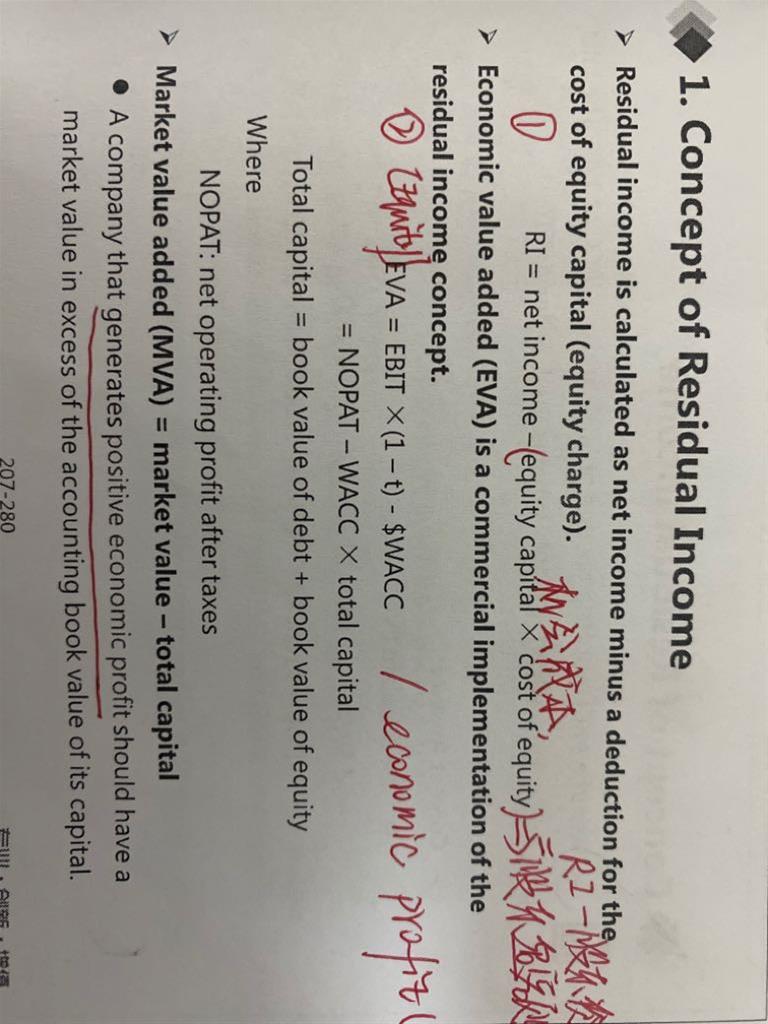 1. Concept of Residual Income
➢ Residual income is calculated as net income minus a deduction for the
cost of equity capital (equity charge).
机会成本,
RI-股东
① RI = net income –(equity capital × cost of equity)=
➢ Economic value added (EVA) is a commercial implementation of the
residual income concept.
② (equity) EVA = EBIT ×(1 – t) - $WACC / economic profit (
= NOPAT – WACC × total capital
Total capital = book value of debt + book value of equity
Where
NOPAT: net operating profit after taxes
➢ Market value added (MVA) = market value – total capital
● A company that generates positive economic profit should have a
market value in excess of the accounting book value of its capital.
207-280